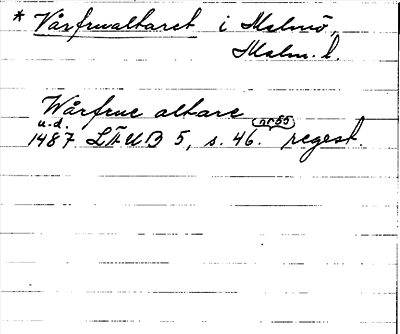 * Vårfrualtaret i Malmö,
Malm. l.
Wårfrue altare
u.d. (nr 55)
1487 LÄUB 5, s. 46. regest.